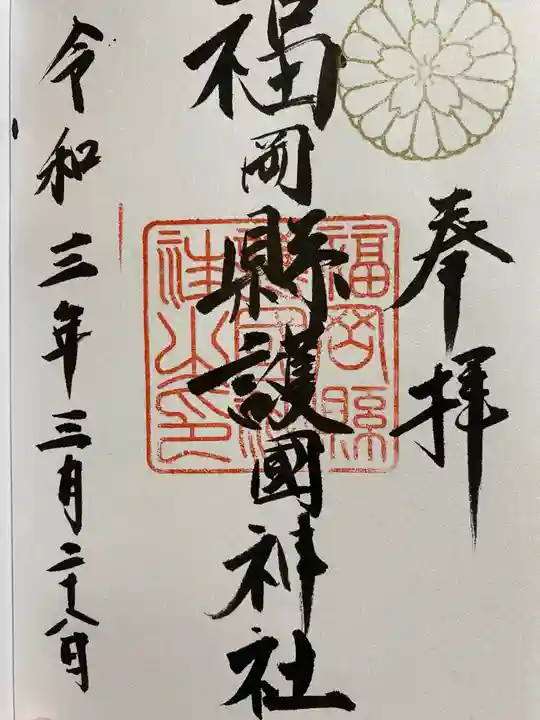 奉拝
福岡縣護國神社
令和三年三月二十八日
福岡縣
社之印